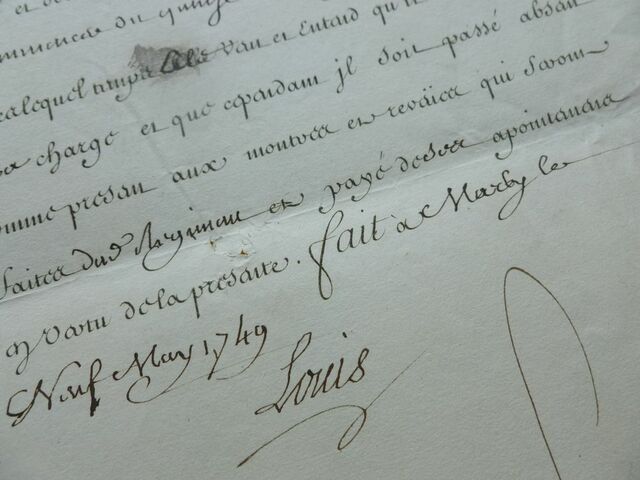 du quinze
lequel temps Il le Veut et Entend qu'il
sa charge et que cependant jl soit passé absent
comme present aux montres et reveües qui seront
faites dud Regiment et payé de ses apointemens
en Vertu de la presente. fait a Marly le
Neuf May 1749
Louis